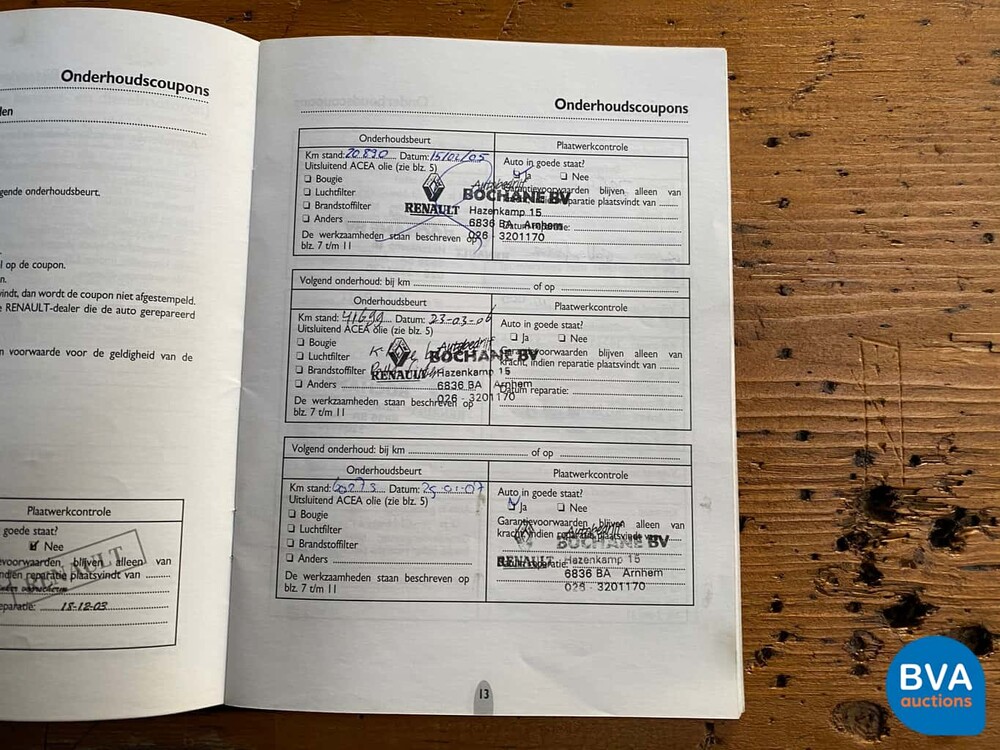 Onderhoudscoupons
len
gende onderhoudsbeurt.
l op de coupon.
n.
vindt, dan wordt de coupon niet afgestempeld.
e RENAULT-dealer die de auto gerepareerd
n voorwaarde voor de geldigheid van de
Plaatwerkcontrole
goede staat?
Nee
voorwaarden blijven alleen van
ndien reparatie plaatsvindt van
RENAULT
eparatie: 18-12-03
Onderhoudscoupons
Onderhoudsbeurt
Plaatwerkcontrole
Km stand: 20.890 Datum: 15/02/05
Uitsluitend ACEA olie (zie blz. 5)
Bougie
Luchtfilter
Brandstoffilter
Anders
De werkzaamheden staan beschreven op
blz. 7 t/m 11
Auto in goede staat?
Ja Nee
Garantievoorwaarden blijven alleen van
kracht, indien reparatie plaatsvindt van
Datum reparatie:
RENAULT
Autobedrijf
BOCHANE BV
Hazenkamp 15
6836 BA Arnhem
026 - 3201170
Volgend onderhoud: bij km of op
Onderhoudsbeurt
Plaatwerkcontrole
Km stand: 41699 Datum: 23-03-06
Uitsluitend ACEA olie (zie blz. 5)
Bougie
Luchtfilter
Brandstoffilter
Anders
De werkzaamheden staan beschreven op
blz. 7 t/m 11
Auto in goede staat?
Ja Nee
Garantievoorwaarden blijven alleen van
kracht, indien reparatie plaatsvindt van
Datum reparatie:
RENAULT
Autobedrijf
BOCHANE BV
Hazenkamp 15
6836 BA Arnhem
026 - 3201170
Volgend onderhoud: bij km of op
Onderhoudsbeurt
Plaatwerkcontrole
Km stand: 60273 Datum: 29-01-07
Uitsluitend ACEA olie (zie blz. 5)
Bougie
Luchtfilter
Brandstoffilter
Anders
De werkzaamheden staan beschreven op
blz. 7 t/m 11
Auto in goede staat?
Ja Nee
Garantievoorwaarden blijven alleen van
kracht, indien reparatie plaatsvindt van
Datum reparatie:
RENAULT
Autobedrijf
BOCHANE BV
Hazenkamp 15
6836 BA Arnhem
026 - 3201170
13
BVA
auctions